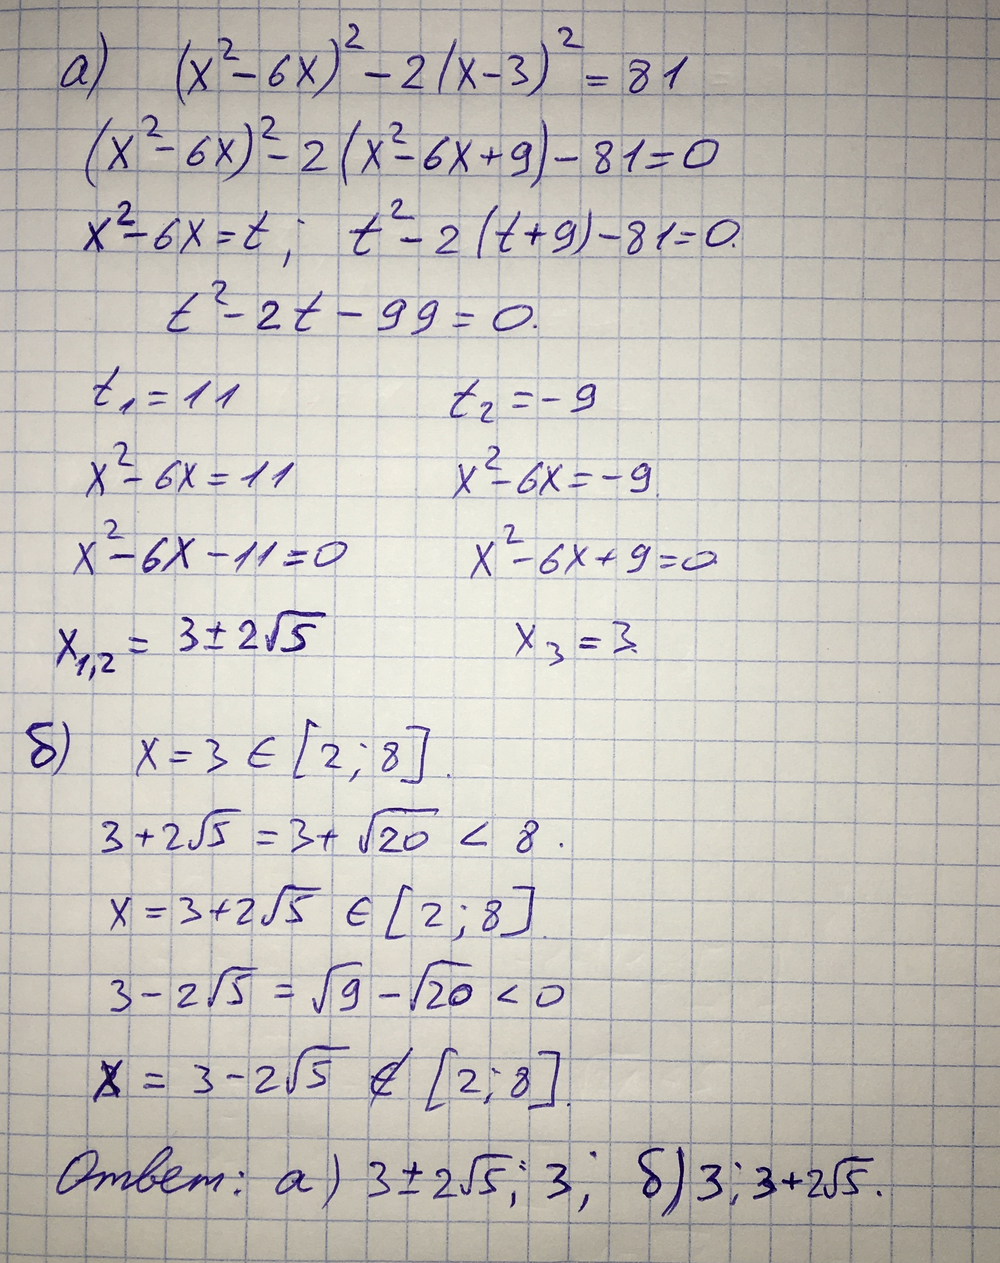 а) (x² - 6x)² - 2(x - 3)² = 81
(x² - 6x)² - 2(x² - 6x + 9) - 81 = 0
x² - 6x = t; t² - 2(t + 9) - 81 = 0.
t² - 2t - 99 = 0.
t₁ = 11 t₂ = -9
x² - 6x = 11 x² - 6x = -9.
x² - 6x - 11 = 0 x² - 6x + 9 = 0.
x₁,₂ = 3 ± 2√5 x₃ = 3.
б) x = 3 ∈ [2; 8].
3 + 2√5 = 3 + √20 < 8.
x = 3 + 2√5 ∈ [2; 8].
3 - 2√5 = √9 - √20 < 0
x = 3 - 2√5 ∉ [2; 8].
Ответ: а) 3 ± 2√5; 3; б) 3; 3 + 2√5.